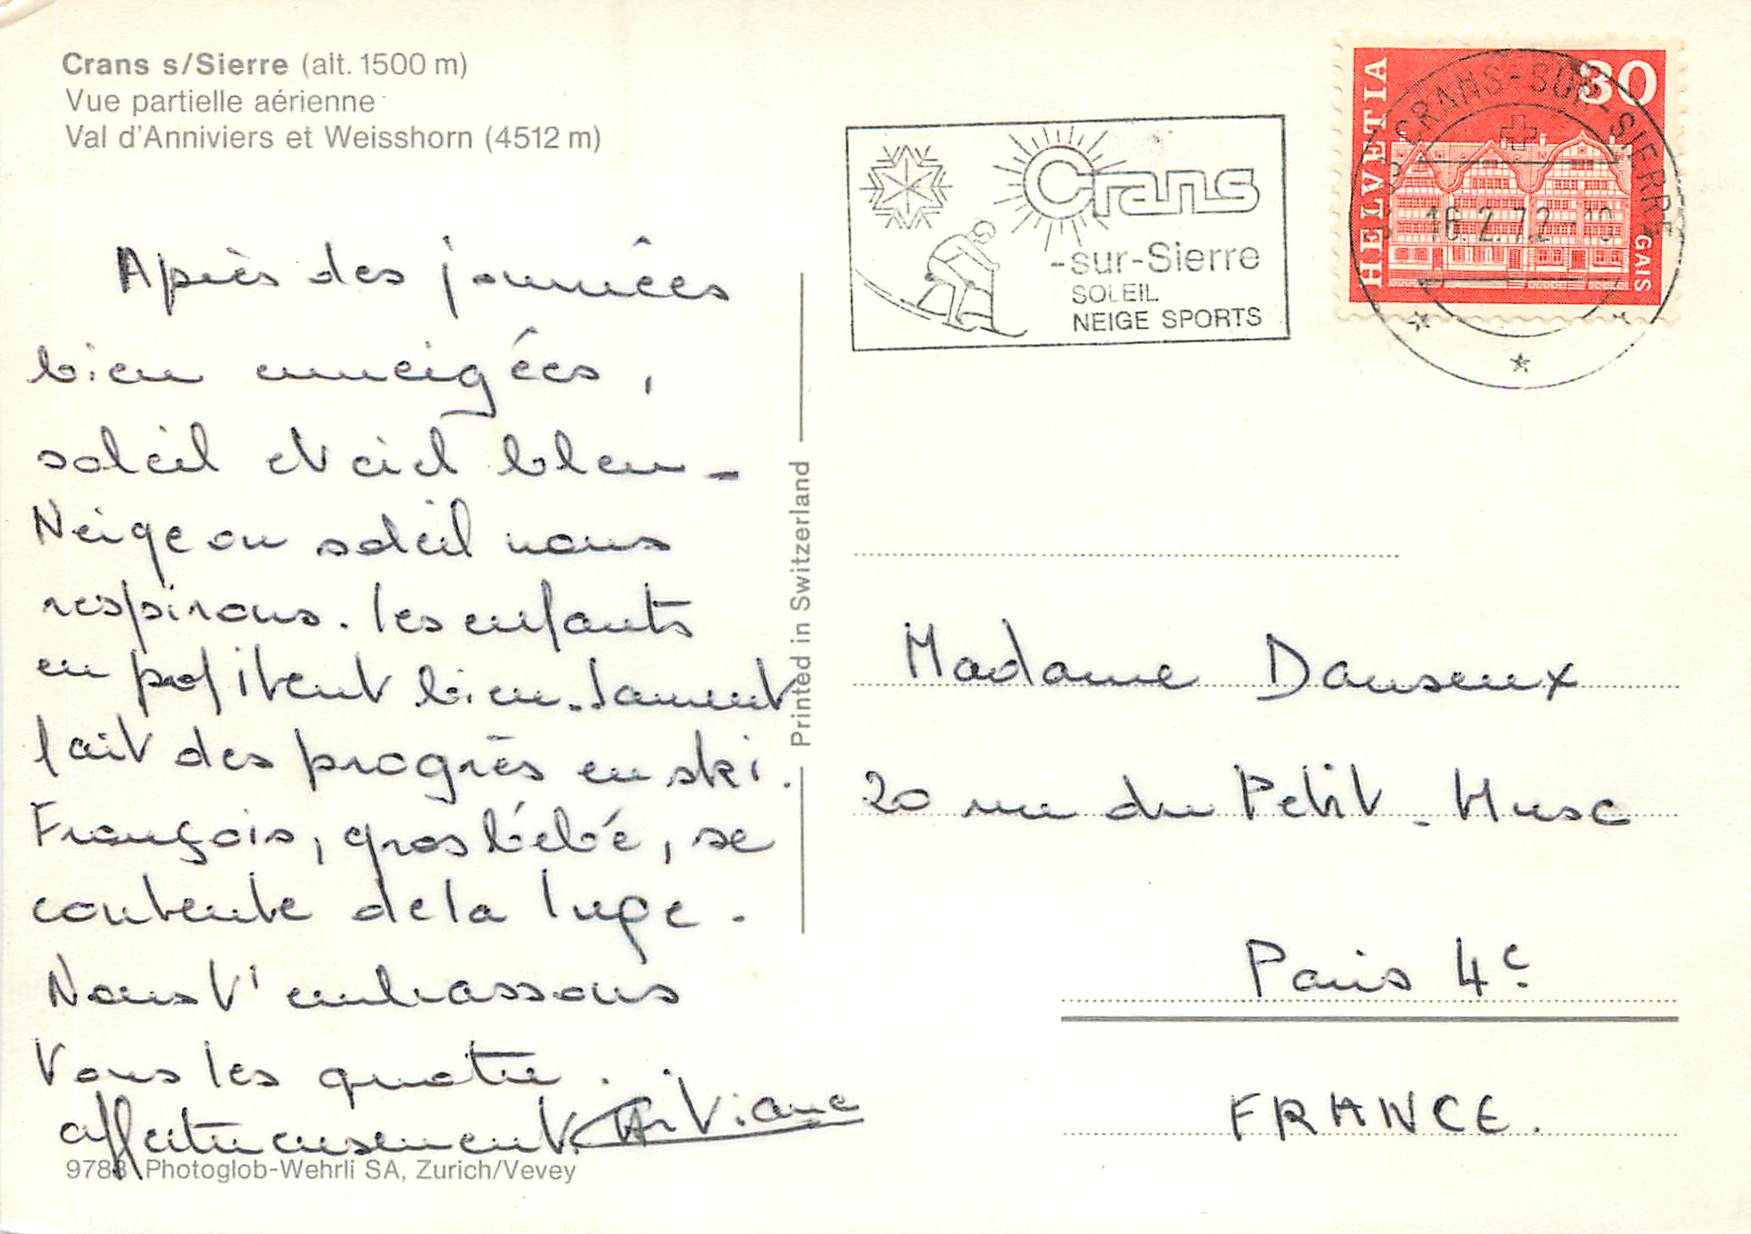 Crans s/Sierre (alt. 1500 m)
Vue partielle aérienne
Val d'Anniviers et Weisshorn (4512 m)
Après des journées
bien enneigées,
soleil et ciel bleu -
Neige ou soleil nous
respirons. les enfants
en profitent bien. Laurent
fait des progrès en ski.
François, gros bébé, se
contente de la luge.
Nous t'embrassons
tous les quatre.
affectueusement.
9788 Photoglob-Wehrli SA, Zurich/Vevey
Printed in Switzerland
Crans
-sur-Sierre
SOLEIL
NEIGE SPORTS
HELVETIA
30
GAIS
CRANS-SUR-SIERRE
16.2.72-19
Madame Danseux
20 rue du Petit-Musc
Paris 4e
FRANCE.